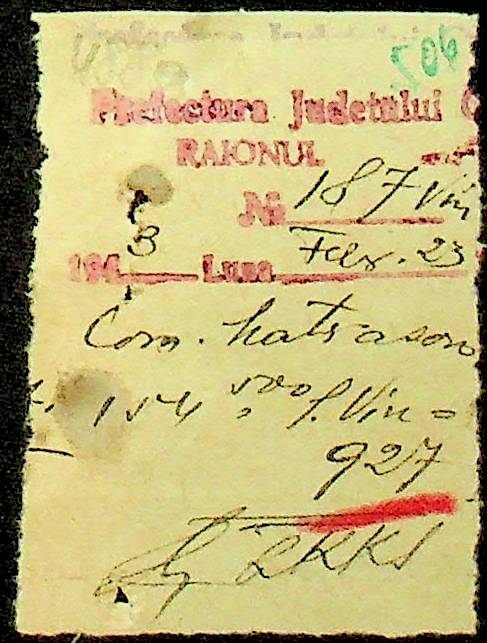 504
Prefectura Judetului
RAIONUL
No 187 Vin
194 3 Luna Febr. 23
Com.
154 500 f. Vin =
927